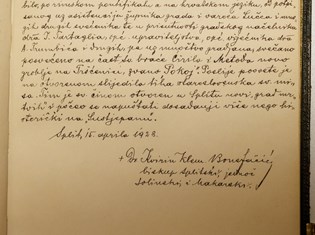 bilo po rimskom pontifikalu a na hrvatskom jeziku. Blagoslov
sanog uz asistenciju župnika grada i varoša Lučca i mno-
gih drugih svećenika te u prisutnosti gradskog načelnika
dra I. Tartaglia, opć. upraviteljstva, opć. vijećnika dra
A. Trumbića i drugih pa uz mnoštvo građana, svečano
posvećeno na čast sv. braće Ćirila i Metoda novo
groblje na , zvano Pokoj. Poslije posvete je
na otvorenom slijedila tiha staroslavenska sv. mi-
sa. Tim je sv. činom otvoren u Splitu novi grad mr-
tvih i počeo se napuštati dosadanji više nego bi-
jevički na Sustjepanu.
Split, 15. aprila 1928.
+ Dr Kvirin Klem. Bonefačić,
biskup Splitski, jednoć
Solinski, i Makarski.